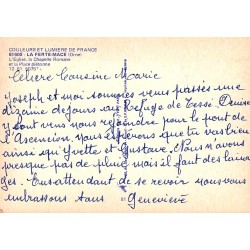 COULEURS ET LUMIERE DE FRANCE
61600 - LA FERTE-MACE (Orne)
L'Eglise, la Chapelle Romane
et la Place piétonne
Chère Cousine Marie
Joseph et moi sommes venus passés une
dizaine de jours au Refuge de Tessé. Denise
y sont venus nous rejoindre pour le pont de
l'Ascension. Nous espérons que tu vas bien
ainsi qu'Yvette et Gustave. Nous n'avons
presque pas de pluie mais il fait des nua
ges. En attendant de se revoir nous vous
embrassons tous
Geneviève